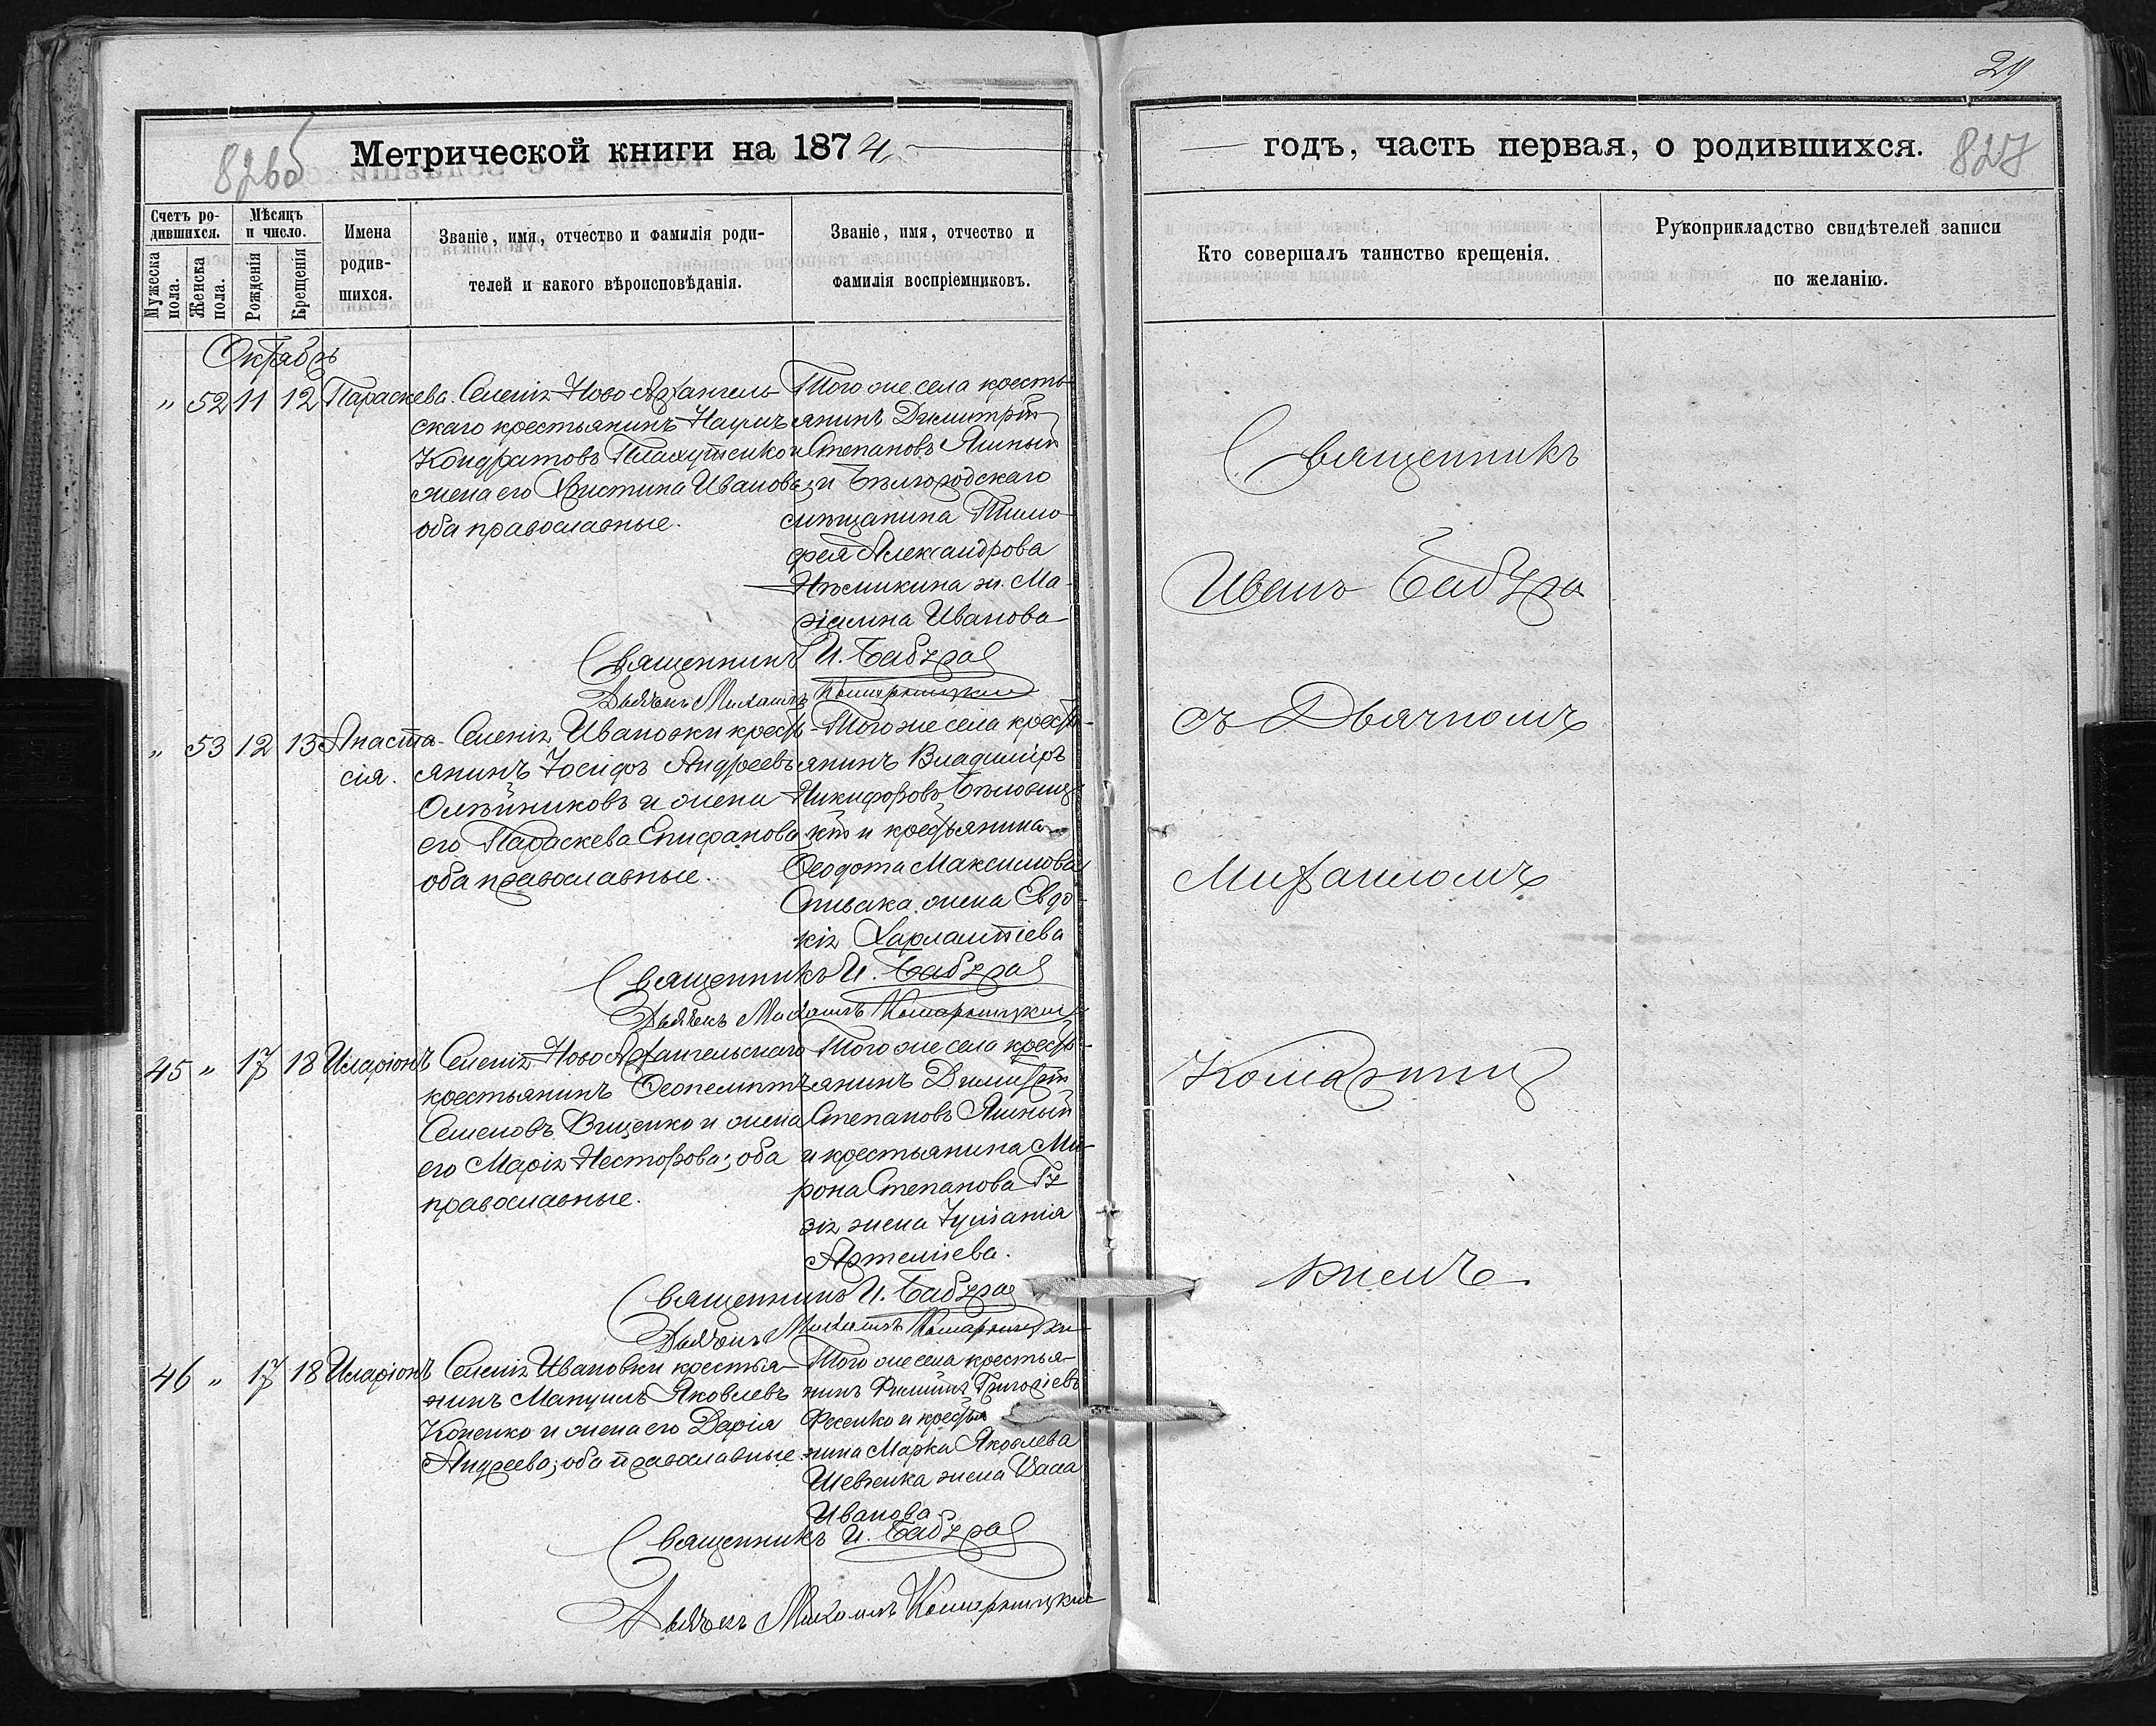 29
826б
Метрической книги на 1874
годъ, часть первая, о родившихся.
827
Счетъ родившихся.
Мужеска пола.
Женска пола.
Мѣсяцъ и число.
Рожденія
Крещенія
Имена родившихся.
Званіе, имя, отчество и фамилія родителей и какого вѣроисповѣданія.
Званіе, имя, отчество и фамилія воспріемниковъ.
Кто совершалъ таинство крещенія.
Рукоприкладство свидѣтелей записи по желанію.
Октябрь
" 52 11 12 Параскева.
Селенія Ново Архангель-
скаго крестьянинъ Наумъ
Кондратовъ и
жена его Христина Иванова;
оба православные.
Того же села кресть-
янинъ Димитрій
Степановъ Яшный
и Бѣлгородскаго
мѣщанина Тимо-
фея Александрова
Нѣмикина ж. Ма-
ріамна Иванова
Священникъ И. Бабура
Дьячекъ Михаилъ Комарницкій
" 53 12 13 Анаста-
сія.
Селенія Ивановки кресть-
янинъ Іосифъ Андреевъ
Олѣйниковъ и жена
его Параскева Епифанова
оба православные.
Того же села кресть-
янинъ Владиміръ
Никифоровъ Бѣловиц-
кій и крестьянина
Ѳеодота Максимова
Спивака жена Евдо-
кія Харлампіева
Священникъ И. Бабура
Дьячекъ Михаилъ Комарницкій
45 " 17 18 Иларіонъ
Селенія Ново Архангельскаго
крестьянинъ Ѳеопемптъ
Семеновъ Вищенко и жена
его Марія Несторова; оба
православные.
Того же села кресть-
янинъ Димитрій
Степановъ Яшный
и крестьянина Ми-
рона Степанова Гу
зія жена Іуліанія
Артеміева.
Священникъ И. Бабура
Дьячекъ Михаилъ Комарницкій
46 " 17 18 Иларіонъ
Селенія Ивановки крестья-
нинъ Мануилъ Яковлевъ
Коненко и жена его Дарія
Андреева; оба православные
Того же села крестья-
нинъ Филиппъ Григоріевъ
Фесенко и крестья
нина Марка Яковлева
Шевченка жена Васса
Иванова
Священникъ И. Бабура
Дьячекъ Михаилъ Комарницкій
Священникъ
Иванъ Бабура
съ Дьячкомъ
Михаиломъ
Комарниц
кимъ